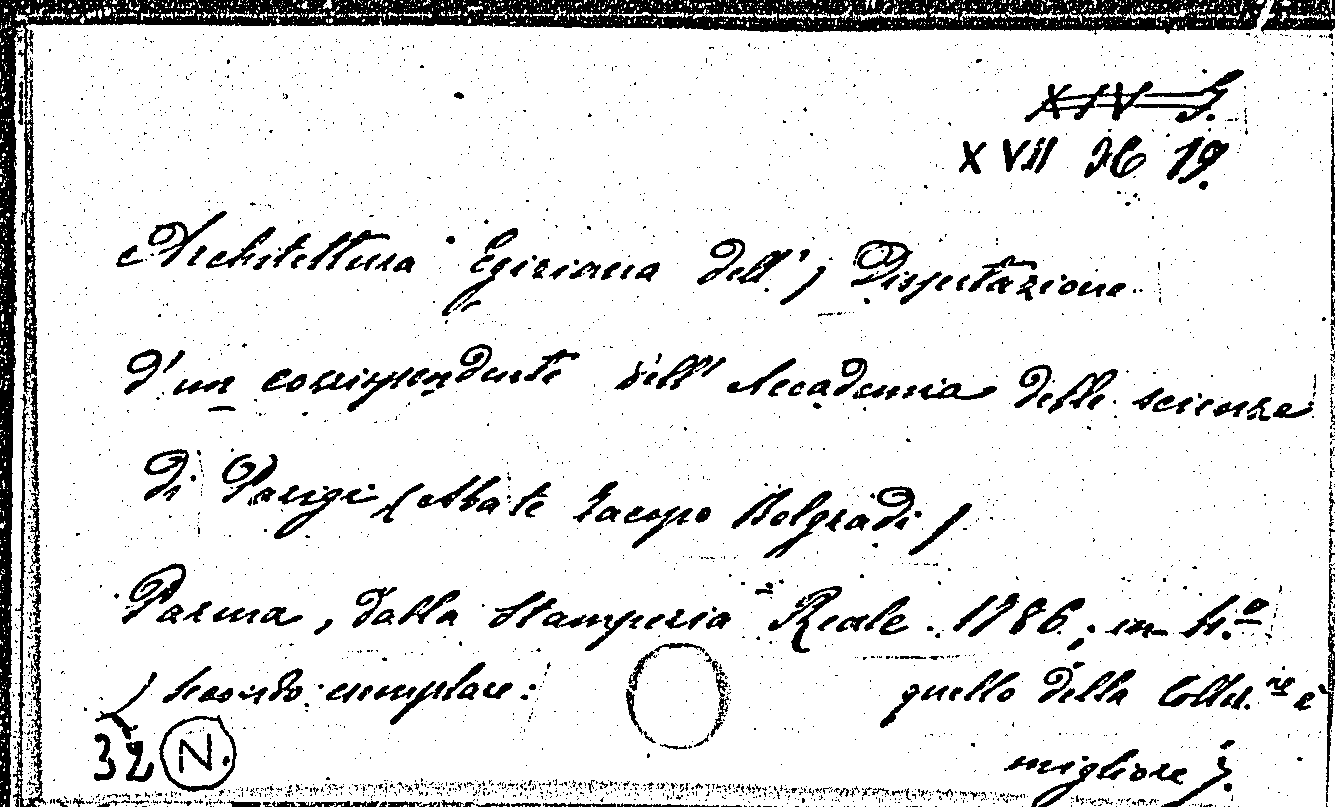 XIV G.
XVII H 19.
Architettura Egiziana dell') Disputazione
d'un corrispondente dell' Accademia delle scienze
di Parigi (Abate Jacopo Belgradi)
Parma, dalla Stamperia Reale. 1786; in 4.º
(secondo esemplare: quello della Collez.ne è
migliore).
32 N.